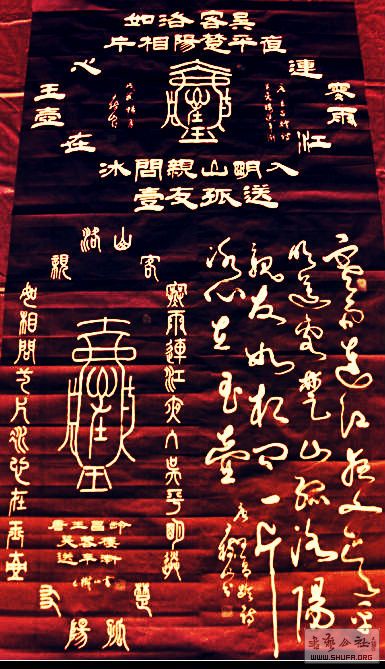 吳客洛如
夜平楚陽相片
連
寒雨
江
心
玉壺
在
入明山親問冰
送孤友壹
客山洛親
寒雨連江夜入吳平明送
如相問一片冰心在玉壺
楚孤陽友
寒雨連江夜入吳平
明送客楚山孤洛陽
親友如相問一片
冰心在玉壺
唐王昌齡詩
书法公社
WWW.SHUFA.ORG